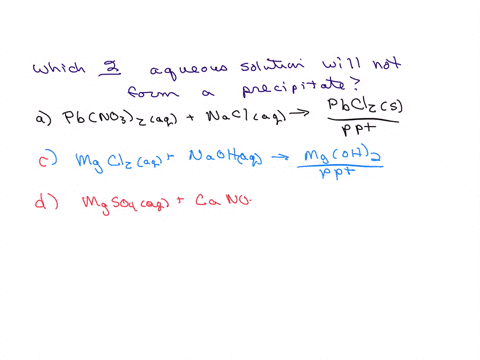 Which 2 aqueous solution will not
form a precipitate?
a) Pb(NO3)2(aq) + NaCl(aq) → PbCl2(s)
ppt
c) MgCl2(aq) + NaOH(aq) → Mg(OH)2
ppt
d) MgSO4(aq) + CaNO